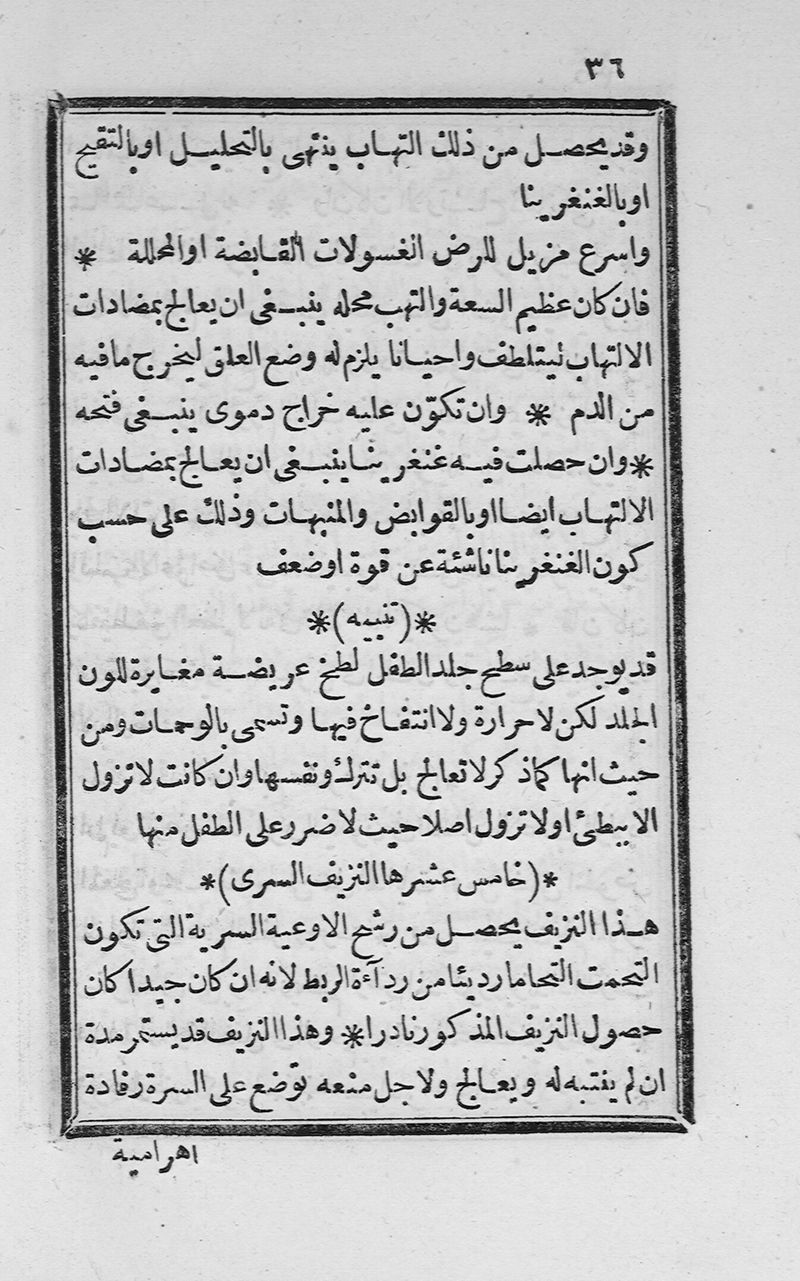 ٣٦
وقد يحصل من ذلك التهاب ينتهى بالتحليل او بالتقيح
او بالغنغرينا
واسرع مزيل للرض الغسولات القابضة اوالمحللة *
فان كان عظيم السعة والتهب محله ينبغى ان يعالج بمضادات
الالتهاب ليتلطف واحيانا يلزم له وضع العلق ليخرج مافيه
من الدم * وان تكوّن عليه خراج دموى ينبغى فتحه
* وان حصلت فيه غنغرينا ينبغى ان يعالج بمضادات
الالتهاب ايضا او بالقوابض والمنبهات وذلك على حسب
كون الغنغرينا ناشئة عن قوة اوضعف
*(تنبيه)*
قد يوجد على سطح جلد الطفل لطخ عريضة مغايرة للون
الجلد لكن لا حرارة ولا انتفاخ فيها وتسمى بالوحمات ومن
حيث انها كماذكر لا تعالج بل تترك ونفسها وان كانت لا تزول
الا ببطئ او لا تزول اصلا حيث لا ضرر على الطفل منها
*(خامس عشرها النزيف السرى)*
هذا النزيف يحصل من رشح الاوعية السرية التى تكون
التحمت التحاما رديئا من ردآءة الربط لانه ان كان جيدا كان
حصول النزيف المذكور نادرا* وهذا النزيف قد يستمر مدة
ان لم ينتبه له ويعالج ولاجل منعه توضع على السرة رفادة
اهرامية